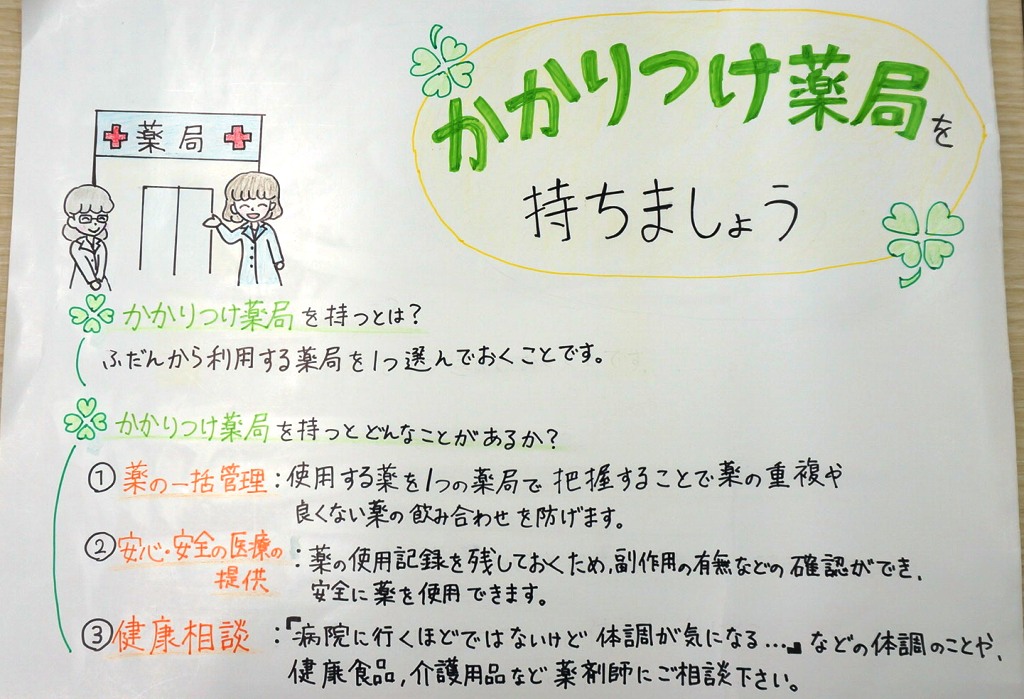 かかりつけ薬局を
持ちましょう
薬局
かかりつけ薬局を持つとは？
ふだんから利用する薬局を1つ選んでおくことです。
かかりつけ薬局を持つとどんなことがあるか？
①薬の一括管理：使用する薬を1つの薬局で把握することで薬の重複や
良くない薬の飲み合わせを防げます。
②安心・安全の医療の
提供
：薬の使用記録を残しておくため、副作用の有無などの確認ができ、
安全に薬を使用できます。
③健康相談：「病院に行くほどではないけど体調が気になる…」などの体調のことや、
健康食品，介護用品など薬剤師にご相談下さい。